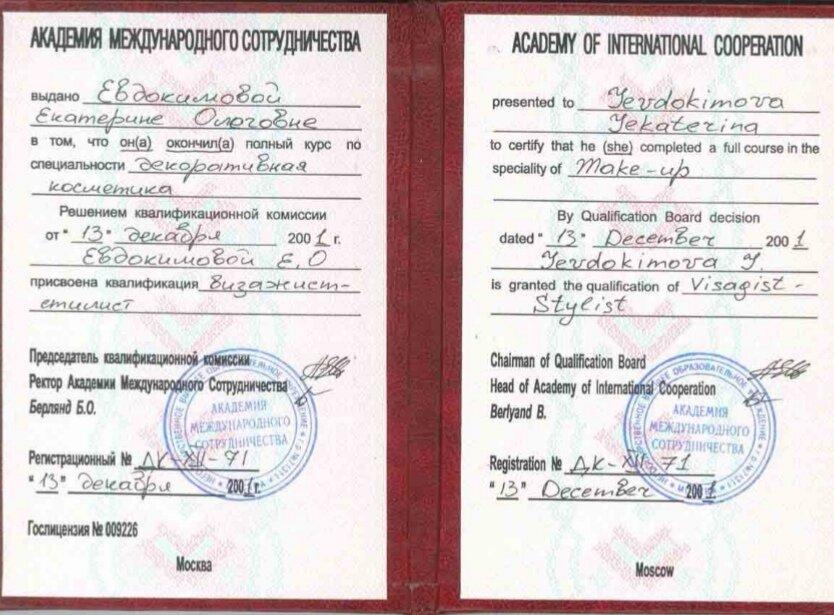 АКАДЕМИЯ МЕЖДУНАРОДНОГО СОТРУДНИЧЕСТВА
выдано Евдокимовой
Екатерине Ологовне
в том, что он(а) окончил(а) полный курс по
специальности декоративная
косметика
Решением квалификационной комиссии
от "13" декабря 2001 г.
Евдокимовой Е.О
присвоена квалификация визажист-
стилист
Председатель квалификационной комиссии
Ректор Академии Международного Сотрудничества
Берлянд Б.О.
АКАДЕМИЯ
МЕЖДУНАРОДНОГО
СОТРУДНИЧЕСТВА
Регистрационный № ДК-XII-71
"13" декабря 2001 г.
Гослицензия № 009226
Москва
ACADEMY OF INTERNATIONAL COOPERATION
presented to Jevdokimova
Jekaterina
to certify that he (she) completed a full course in the
speciality of Make-up
By Qualification Board decision
dated "13" December 2001
Jevdokimova J.
is granted the qualification of Visagist-
Stylist
Chairman of Qualification Board
Head of Academy of International Cooperation
Berlyand B.
АКАДЕМИЯ
МЕЖДУНАРОДНОГО
СОТРУДНИЧЕСТВА
Registration № ДК-XII-71
"13" December 2001
Moscow